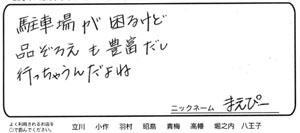 駐車場が困るけど
品ぞろえも豊富だし
行っちゃうんだよね
ニックネーム まえぴー
よく利用されるお店を
○で囲んでください。 立川 小作 羽村 昭島 青梅 高幡 堀之内 八王子